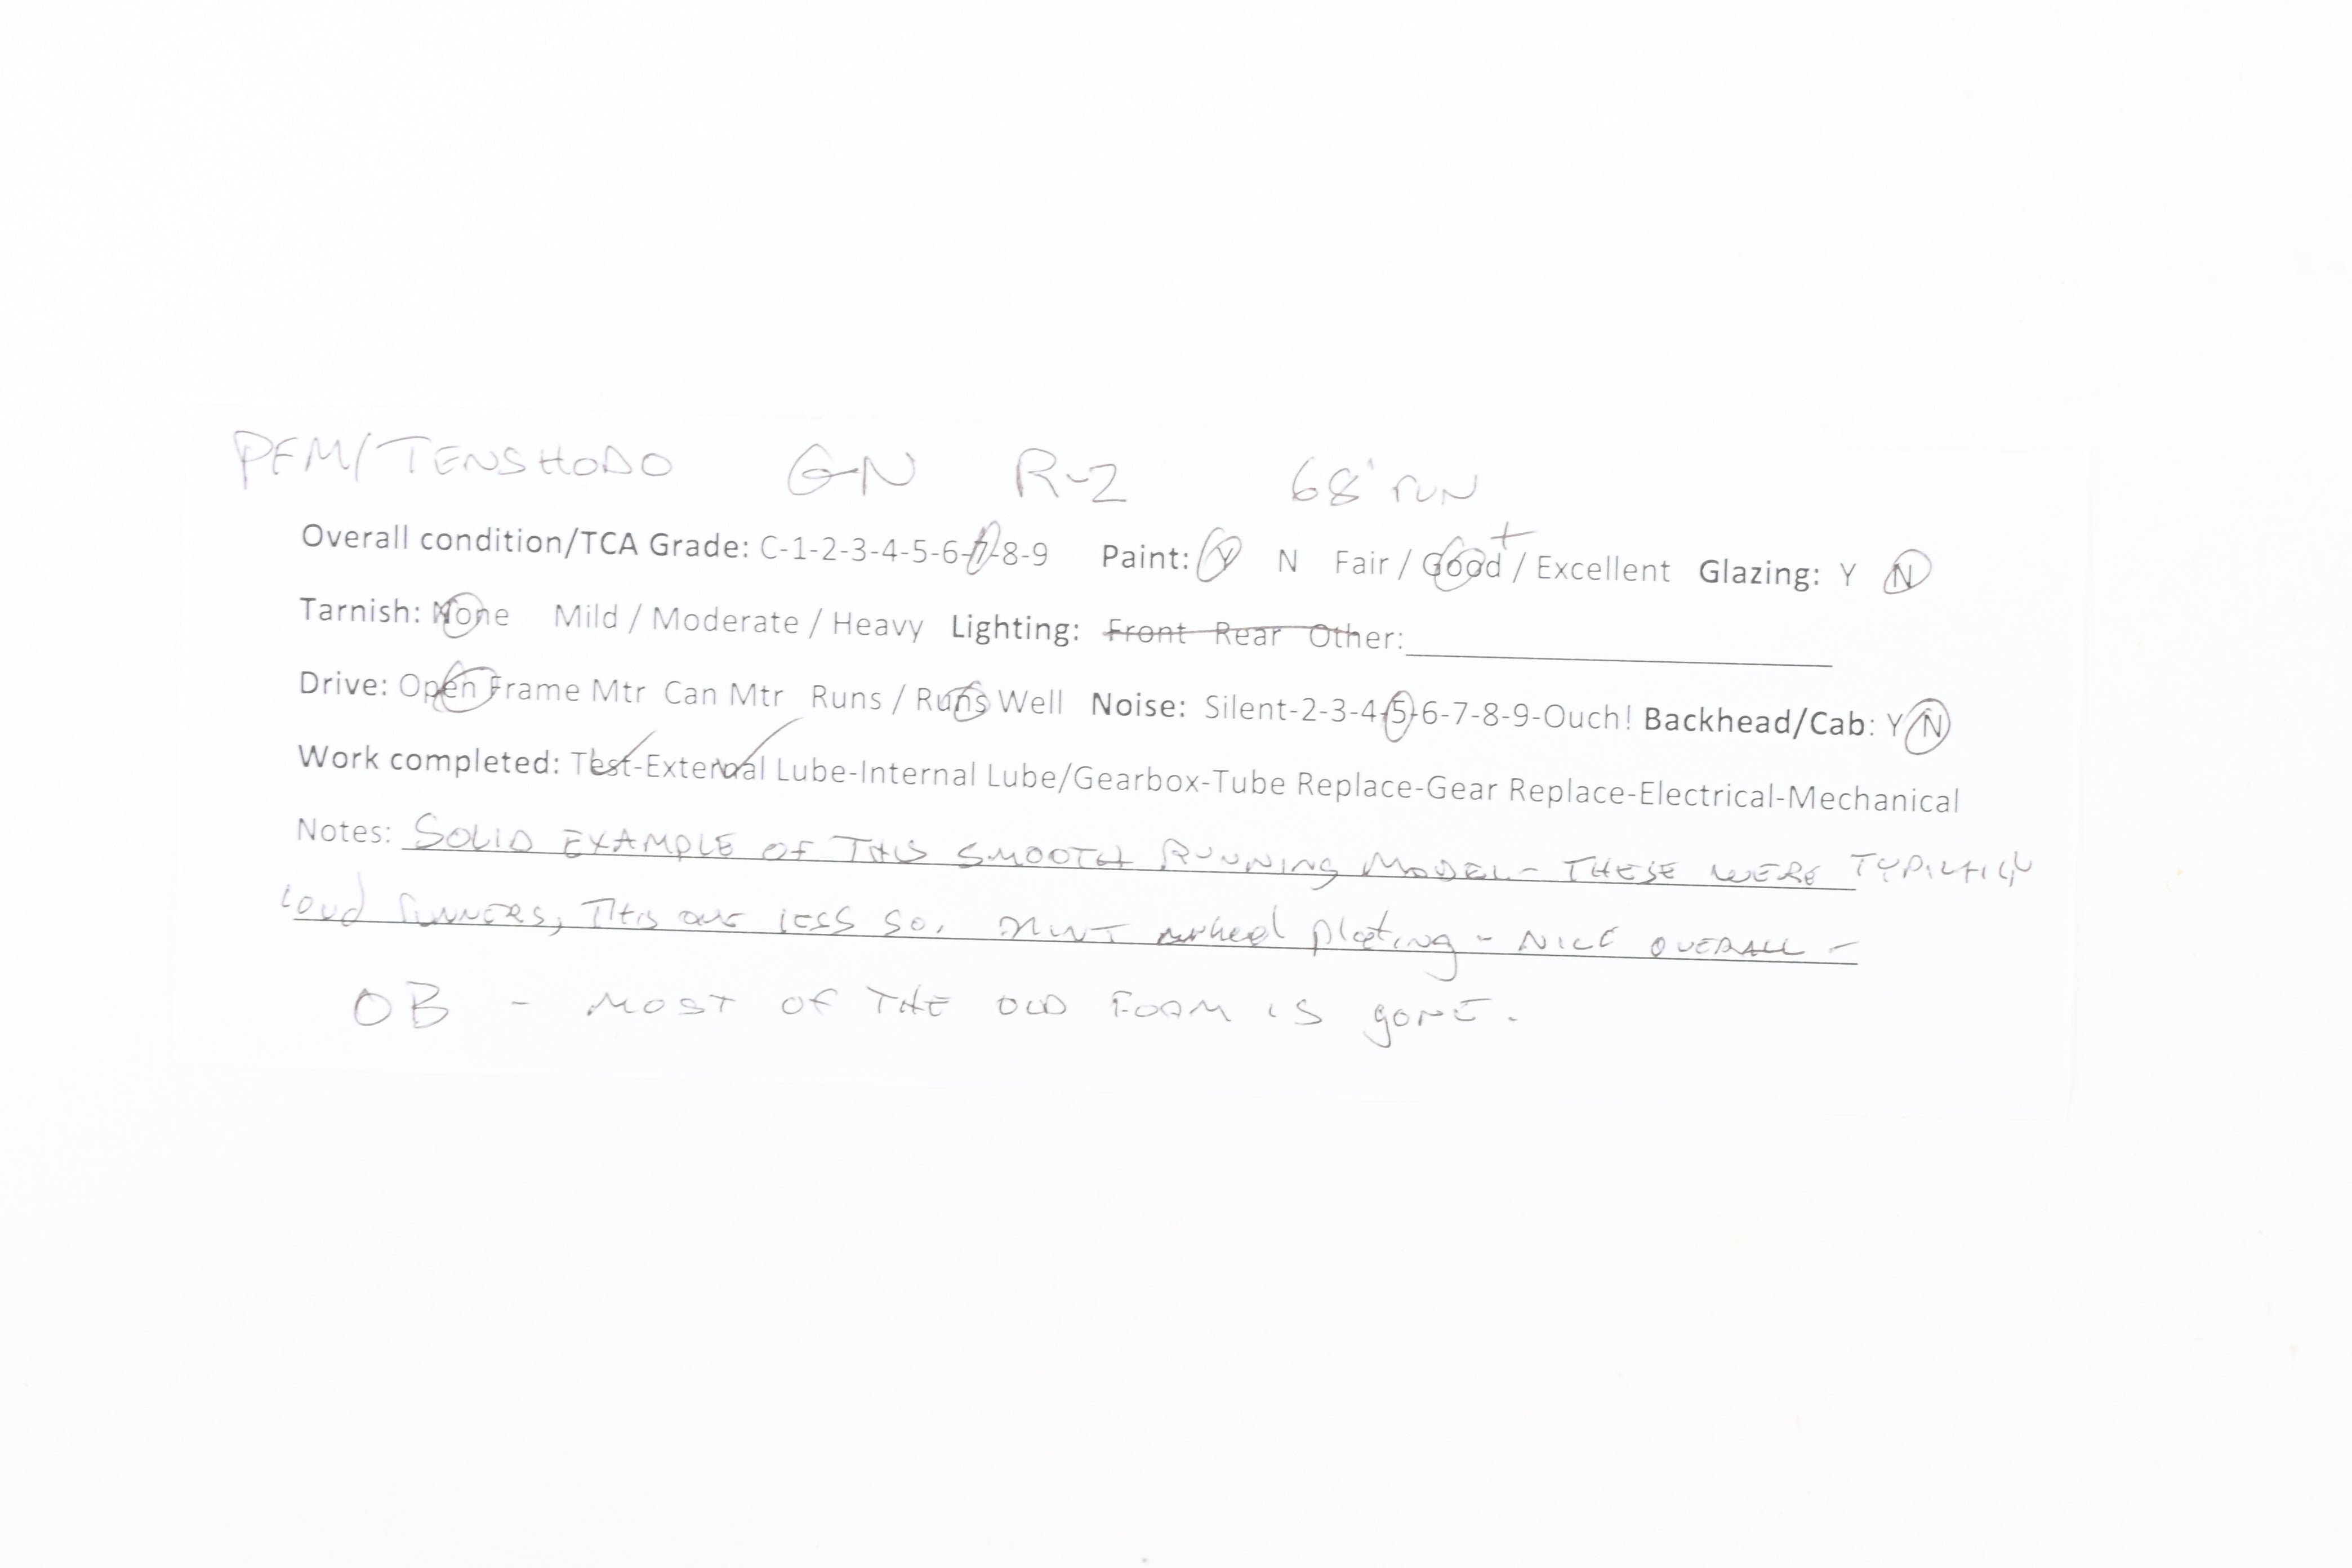 PFM/TENSHODO GN R-2 68' run
Overall condition/TCA Grade: C-1-2-3-4-5-6-7-8-9 Paint: Y N Fair / Good+ / Excellent Glazing: Y N
Tarnish: None Mild / Moderate / Heavy Lighting: Front Rear Other:
Drive: Open Frame Mtr Can Mtr Runs / Runs Well Noise: Silent-2-3-4-5-6-7-8-9-Ouch! Backhead/Cab: Y N
Work completed: Test-External Lube-Internal Lube/Gearbox-Tube Replace-Gear Replace-Electrical-Mechanical
Notes: SOLID EXAMPLE OF THIS SMOOTH RUNNING MODEL - THESE WERE TYPICALLY
LOUD RUNNERS, THIS ONE LESS SO. MINT wheel plating - NICE OVERALL -
OB - MOST OF THE OLD FOAM IS gone.